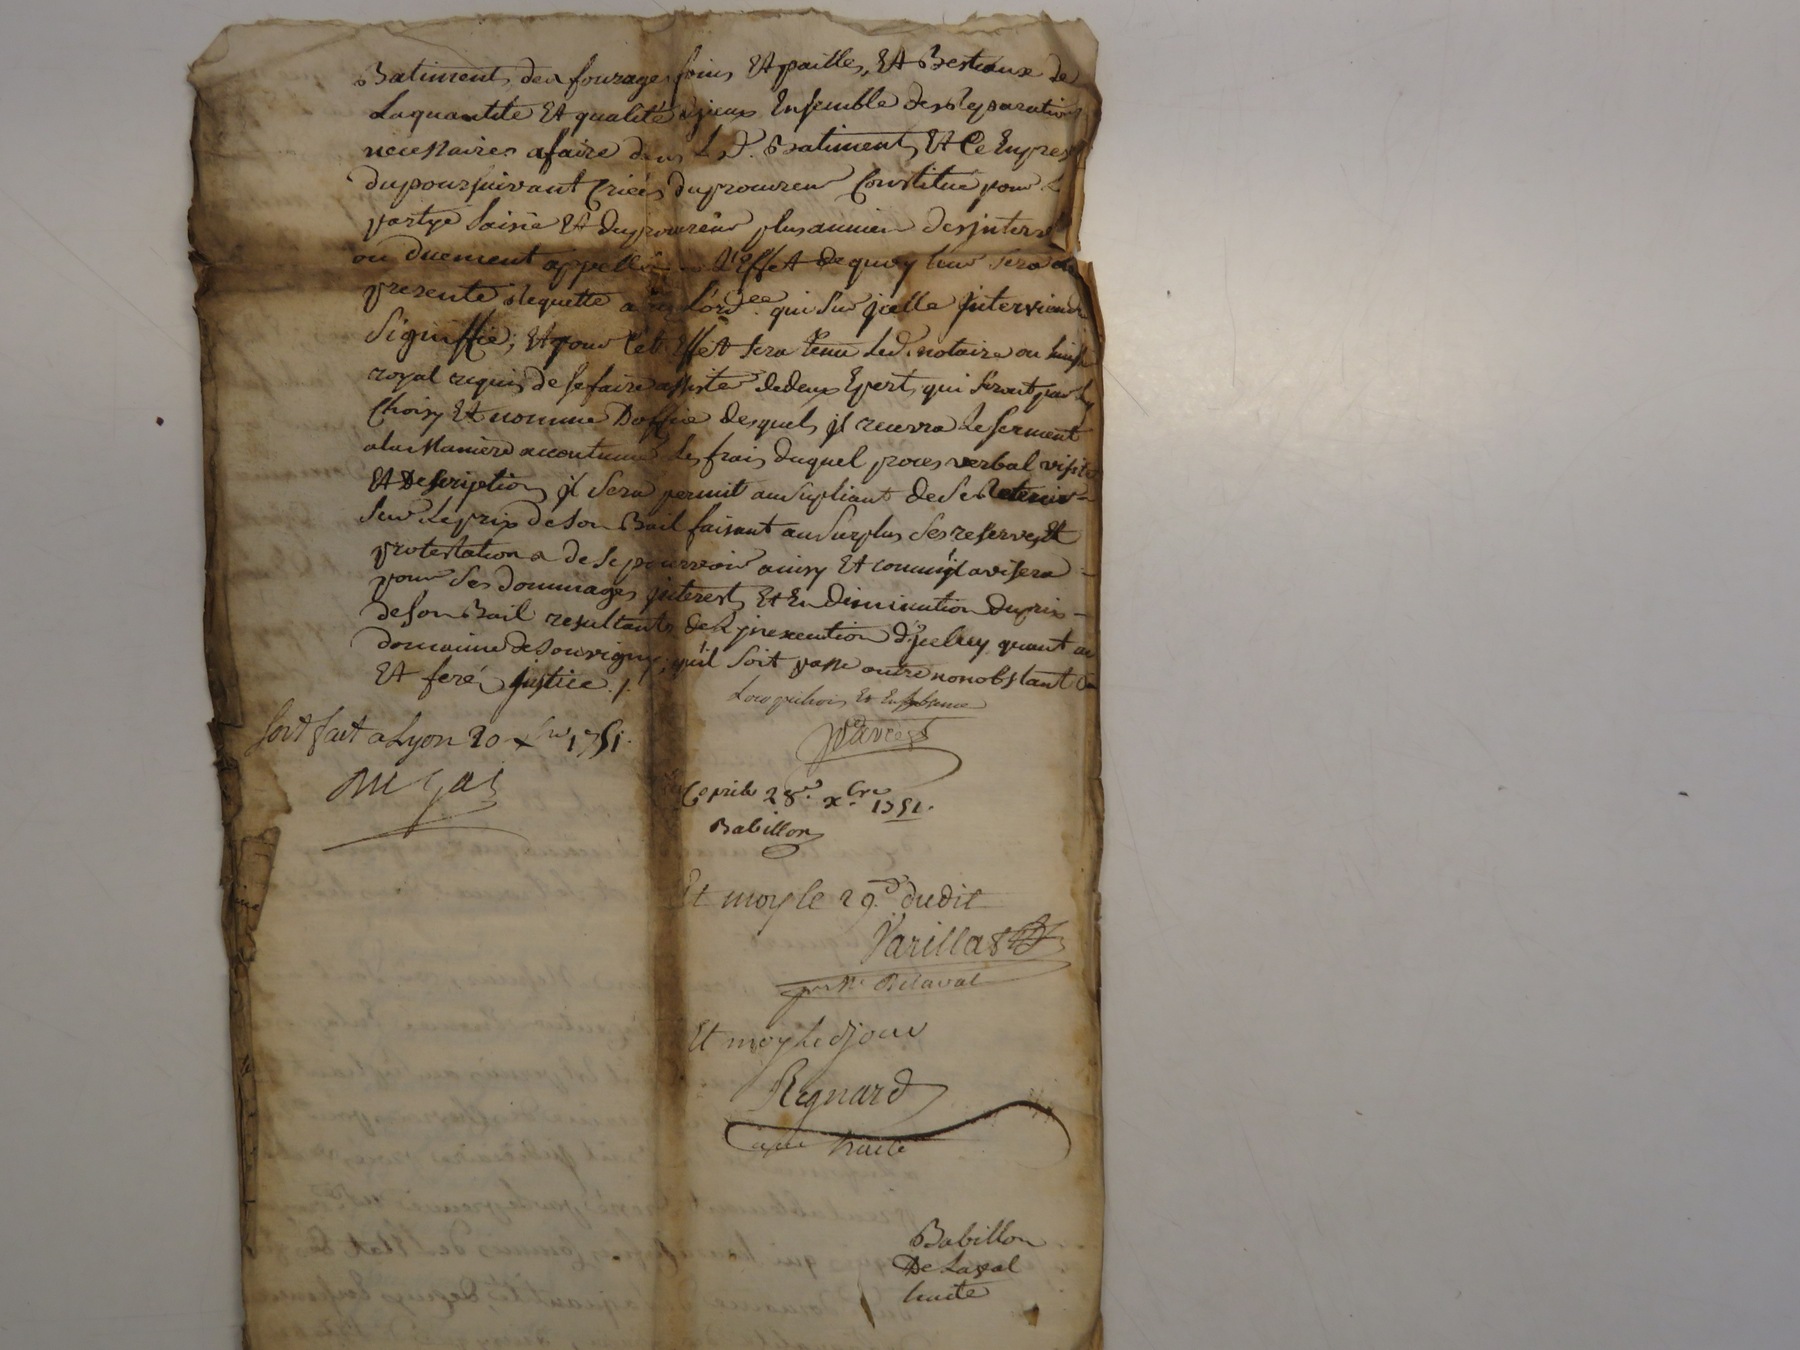 Batiments des fourages foins Et pailles, Et Bestiaux de
La quantité Et qualité d'jceux Ensemble des Reparations
necessaires afaire dans Led. Batiments, Et Ce En pres
du poursuivant Criées du procureur Constitué pour la
partye Saisie Et du procureur plus ancien des
ou duement appellés a L'Effet de quoy leur sera
presenté Requette L'ord.ee qui Sur jcelle jnterviendra
Signiffiée; Et pour Cet Effet Sera tenu Led. notaire ou
royal requis de se faire assister de deux Expert, qui Seront par luy
Choisy Et nommé D'office desquels jl recevra Le serment
ala Maniere accoutumé Les frais duquel proces verbal visite
Et Description jl Sera permit au Supliant de Se Retenir
Sur Le prix de son Bail faisant au Surplus Ses reserves Et
protestations de Se pourvoir ainsy Et comm'jl avisera
pour Ses dommages jnterests Et En Diminution du prix
de son Bail resultants de L'jnexecution d'jceluy quant au
domaine de Souvigny; qu'il Soit passé outre nonobstant
Et feré justice ./.
Soit fait a Lyon 20 1751.
28.e x.bre 1751.
Babillon
Et moy le 29.e dudit
Varillas
pour Me Delaval
Et moy Led jour
Regnard
pour huite
Babillon
De Laval
huite